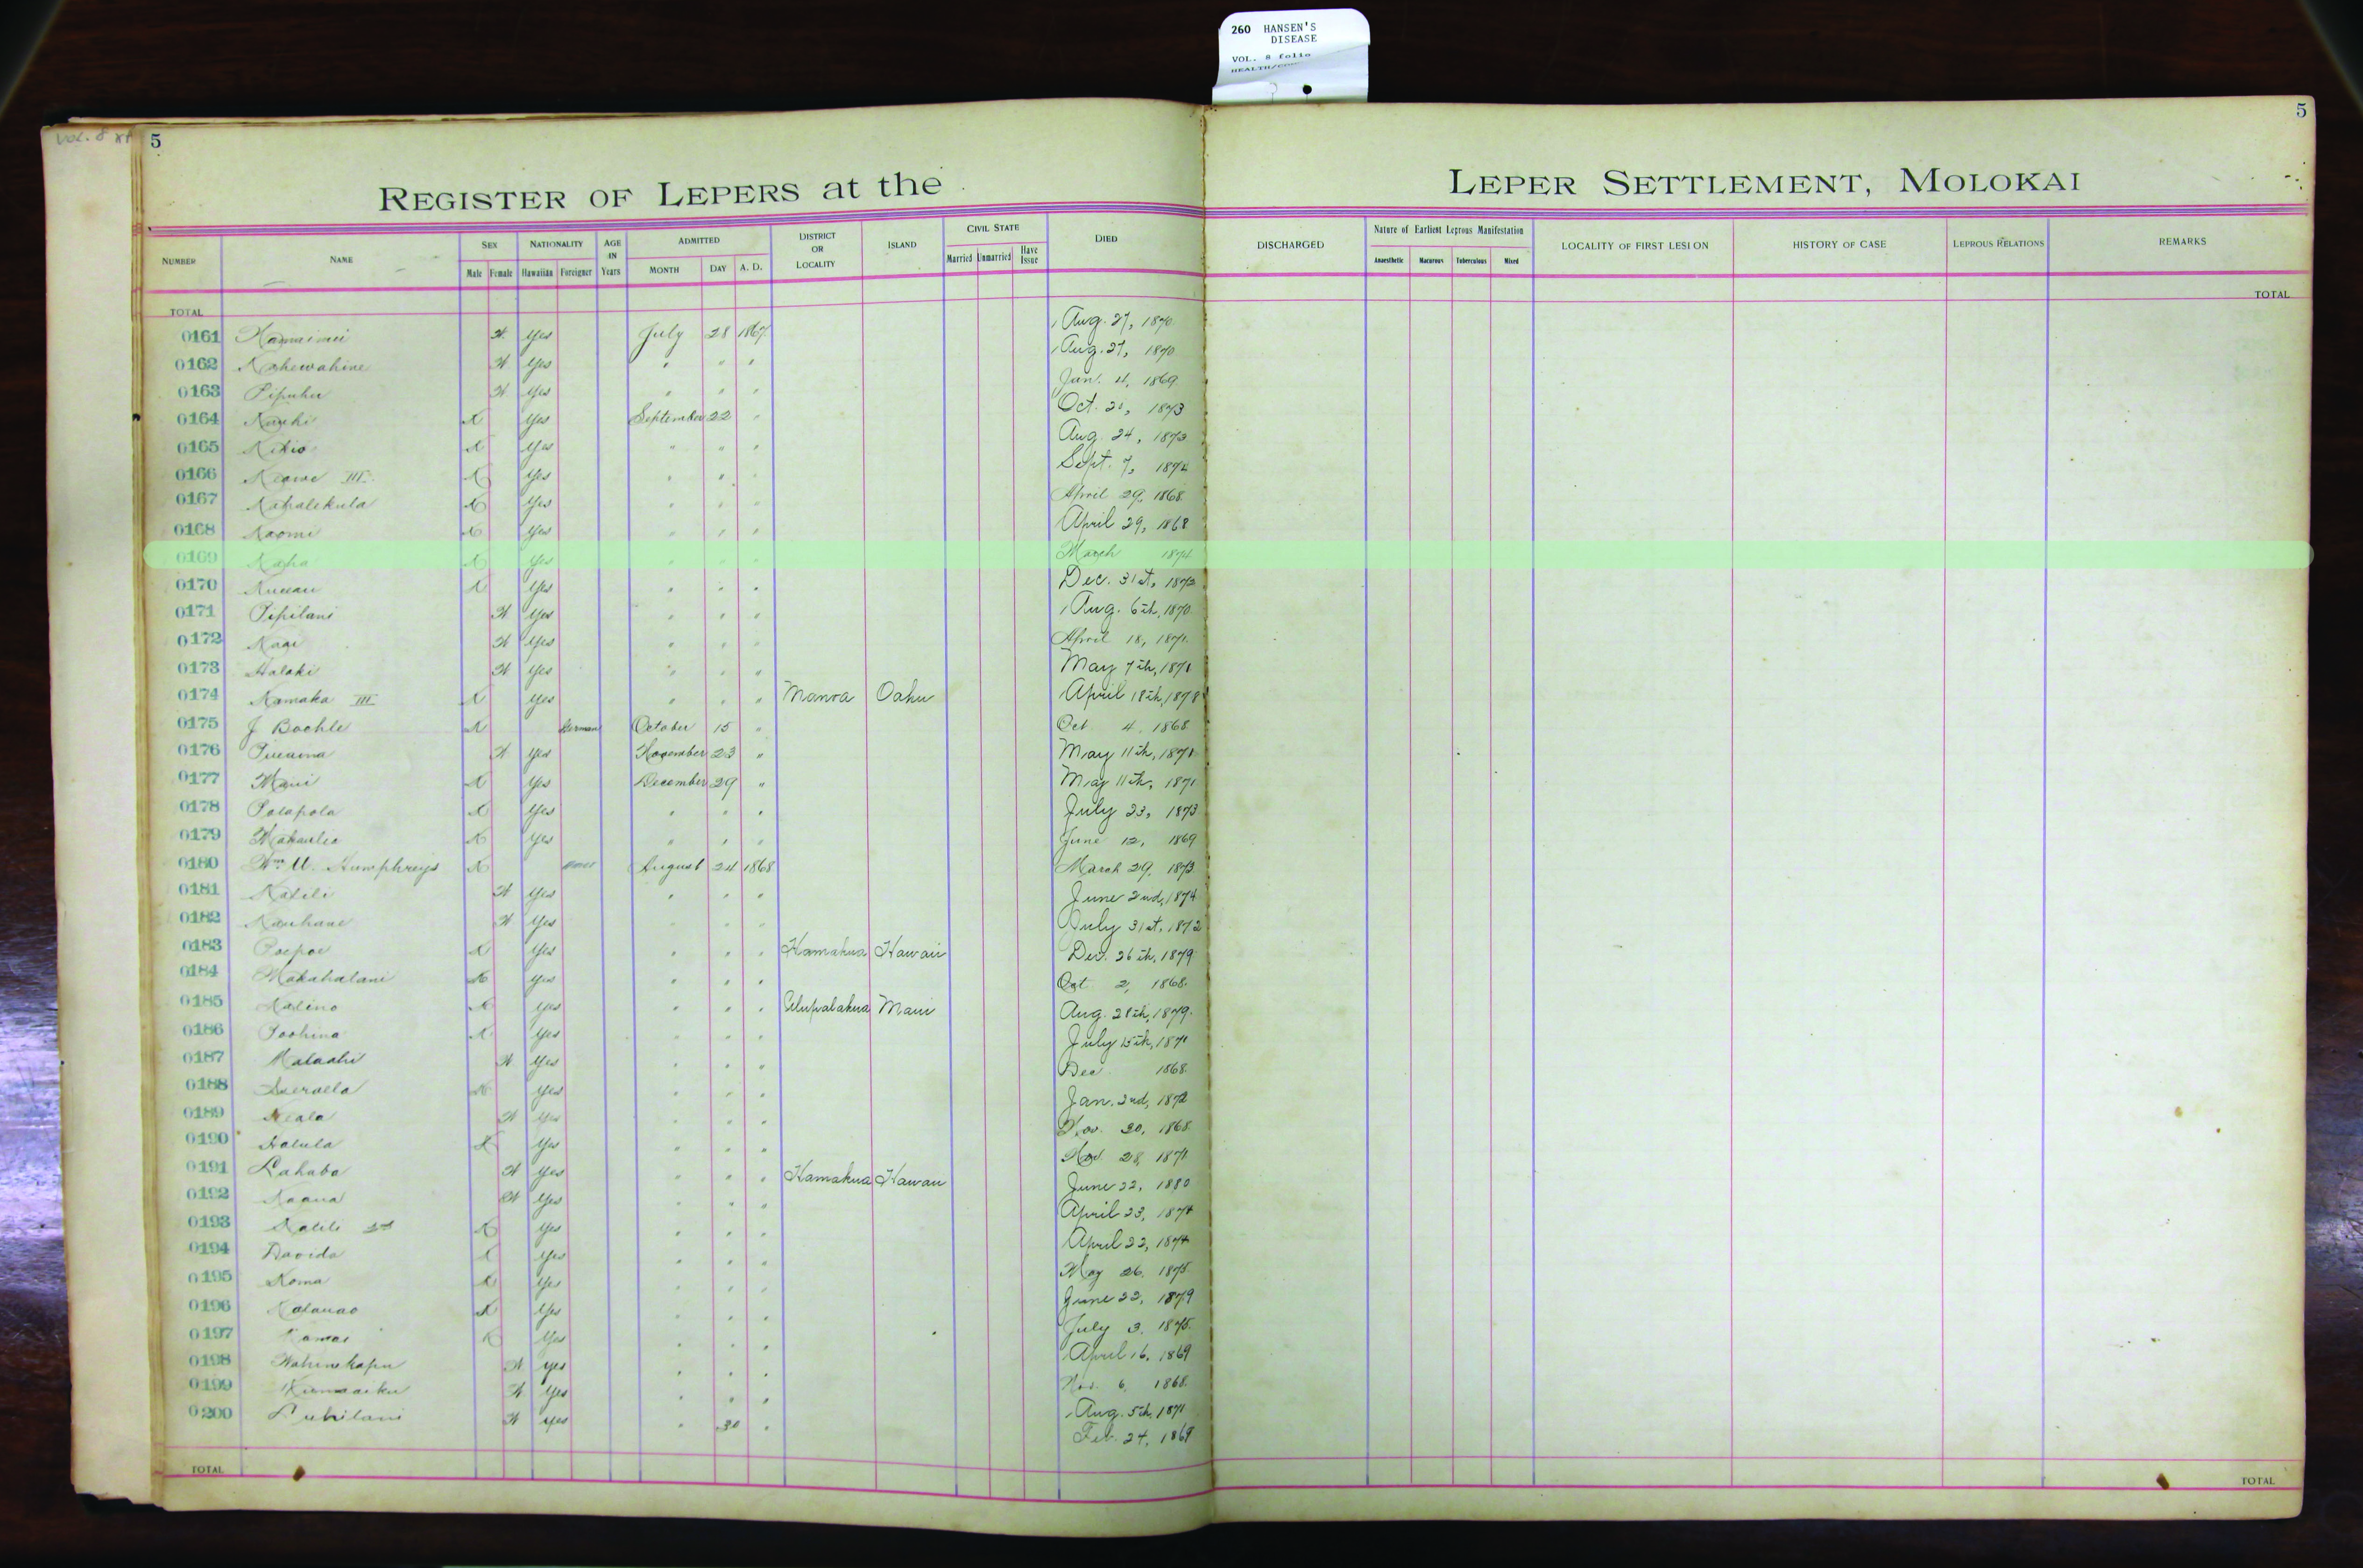 260 HANSEN'S
DISEASE
VOL. 8 folio
VOL. 8
5
5
REGISTER OF LEPERS at the LEPER SETTLEMENT, MOLOKAI
NUMBER NAME SEX Male Female NATIONALITY Hawaiian Foreigner AGE IN Years ADMITTED MONTH DAY A. D. DISTRICT OR LOCALITY ISLAND CIVIL STATE Married Unmarried Have Issue DIED DISCHARGED Nature of Earliest Leprous Manifestation Anaesthetic Macurous Tuberculous Mixed LOCALITY OF FIRST LESION HISTORY OF CASE LEPROUS RELATIONS REMARKS
TOTAL TOTAL
0161 Yes July 28 1867 Aug. 27, 1870
0162 Kahewahine Yes " " " Aug. 27, 1870
0163 Pipuhu Yes " " " Jan. 4, 1869
0164 Yes September 22 " Oct. 1873
0165 Kikio X Yes " " " Aug. 24, 1873
0166 Keawe III X Yes " " " Sept. 7, 1874
0167 Kahalekula X Yes " " " April 29, 1868
0168 Naomi X Yes " " " April 29, 1868
0169 Kaha X Yes " " " March 1874
0170 X Yes " " " Dec. 31st, 1873
0171 Pipilani Yes " " " Aug. 6th, 1870
0172 Yes " " " April 18, 1871
0173 Halaki Yes " " " May 7th, 1871
0174 Kamaka III X Yes " " " Manoa Oahu April 18th, 1878
0175 J Bochle X German October 15 " Oct 4, 1868
0176 Yes November 23 " May 11th, 1871
0177 Maui X Yes December 29 " May 11th, 1871
0178 Polapola X Yes " " " July 23, 1873
0179 Makaulea X Yes " " " June 12, 1869
0180 Wm. Humphreys X August 24 1868 March 29, 1873
0181 Kalili Yes " " " June 2nd, 1874
0182 Kauhane Yes " " " July 31st, 1872
0183 Poepoe X Yes " " " Hamakua Hawaii Dec. 26th, 1879
0184 Makahalani X Yes " " " Oct 2, 1868
0185 Kalino X Yes " " " Ulupalakua Maui Aug. 28th, 1879
0186 Poohina X Yes " " " July 15th, 1871
0187 Malaahi Yes " " " Dec 1868
0188 X Yes " " " Jan. 2nd, 1872
0189 Keala Yes " " " Nov. 30, 1868
0190 Halula X Yes " " " Nov. 28, 1871
0191 Lahaba Yes " " " Hamakua Hawaii June 22, 1880
0192 Kaaua Yes " " " April 23, 1874
0193 Kalili 2nd X Yes " " " April 22, 1874
0194 Davida X Yes " " " May 26, 1875
0195 Koma X Yes " " " June 22, 1879
0196 Kalauao X Yes " " " July 3, 1875
0197 X Yes " " " April 16, 1869
0198 Wahinekapu Yes " " " Nov. 6, 1868
0199 Yes " " " Aug. 5th, 1871
0200 Yes " 30 " Feb. 24, 1869
TOTAL TOTAL